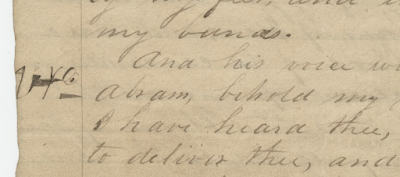 my feet, and
my bands.
And his voice w
abram, behold my
I have heard thee,
to deliver thee, and